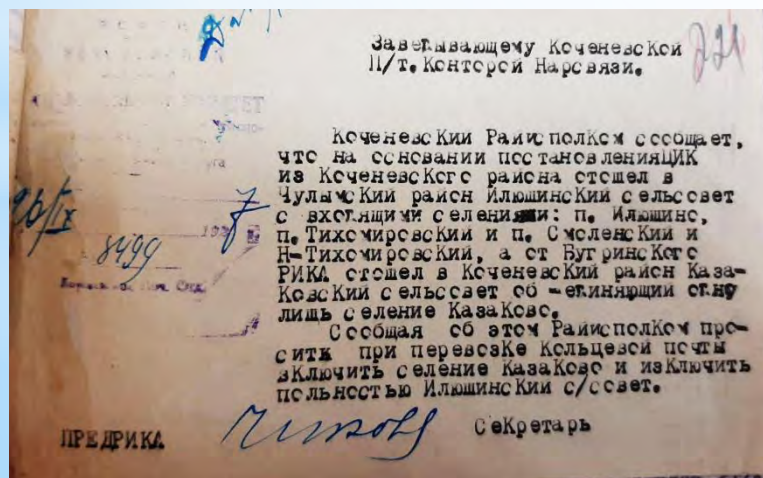 Заведывающему Коченевской
П/т. Конторой Нарсвязи.
221
Коченевский Райисполком сообщает,
что на основании постановленияЦИК
из Коченевского района отошел в
Чулымский район Илюшинский сельсовет
с входящими селениями: п. Илюшино,
п.Тихомировский и п. Смоленский и
Н-Тихомировский, а от Бугринского
РИКА отошел в Коченевский район Каза-
ковский сельсовет об -единяющий одну
лишь селение Казаково.
Сообщая об этом Райисполком про-
сить при перевозке Кольцевой почты
включить селение Казаково и изключить
польностью Илюшинский с/совет.
26/IX
192 7
8499
ПРЕДРИКА
Секретарь